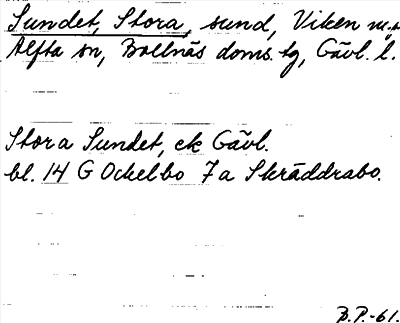 Sundet, Stora, sund, Viken m.fl.
Alfta sn, Bollnäs doms. tg, Gävl. l.
Stora Sundet, ek Gävl.
bl. 14 G Ockelbo 7a Skräddrabo.
B.P.-61.